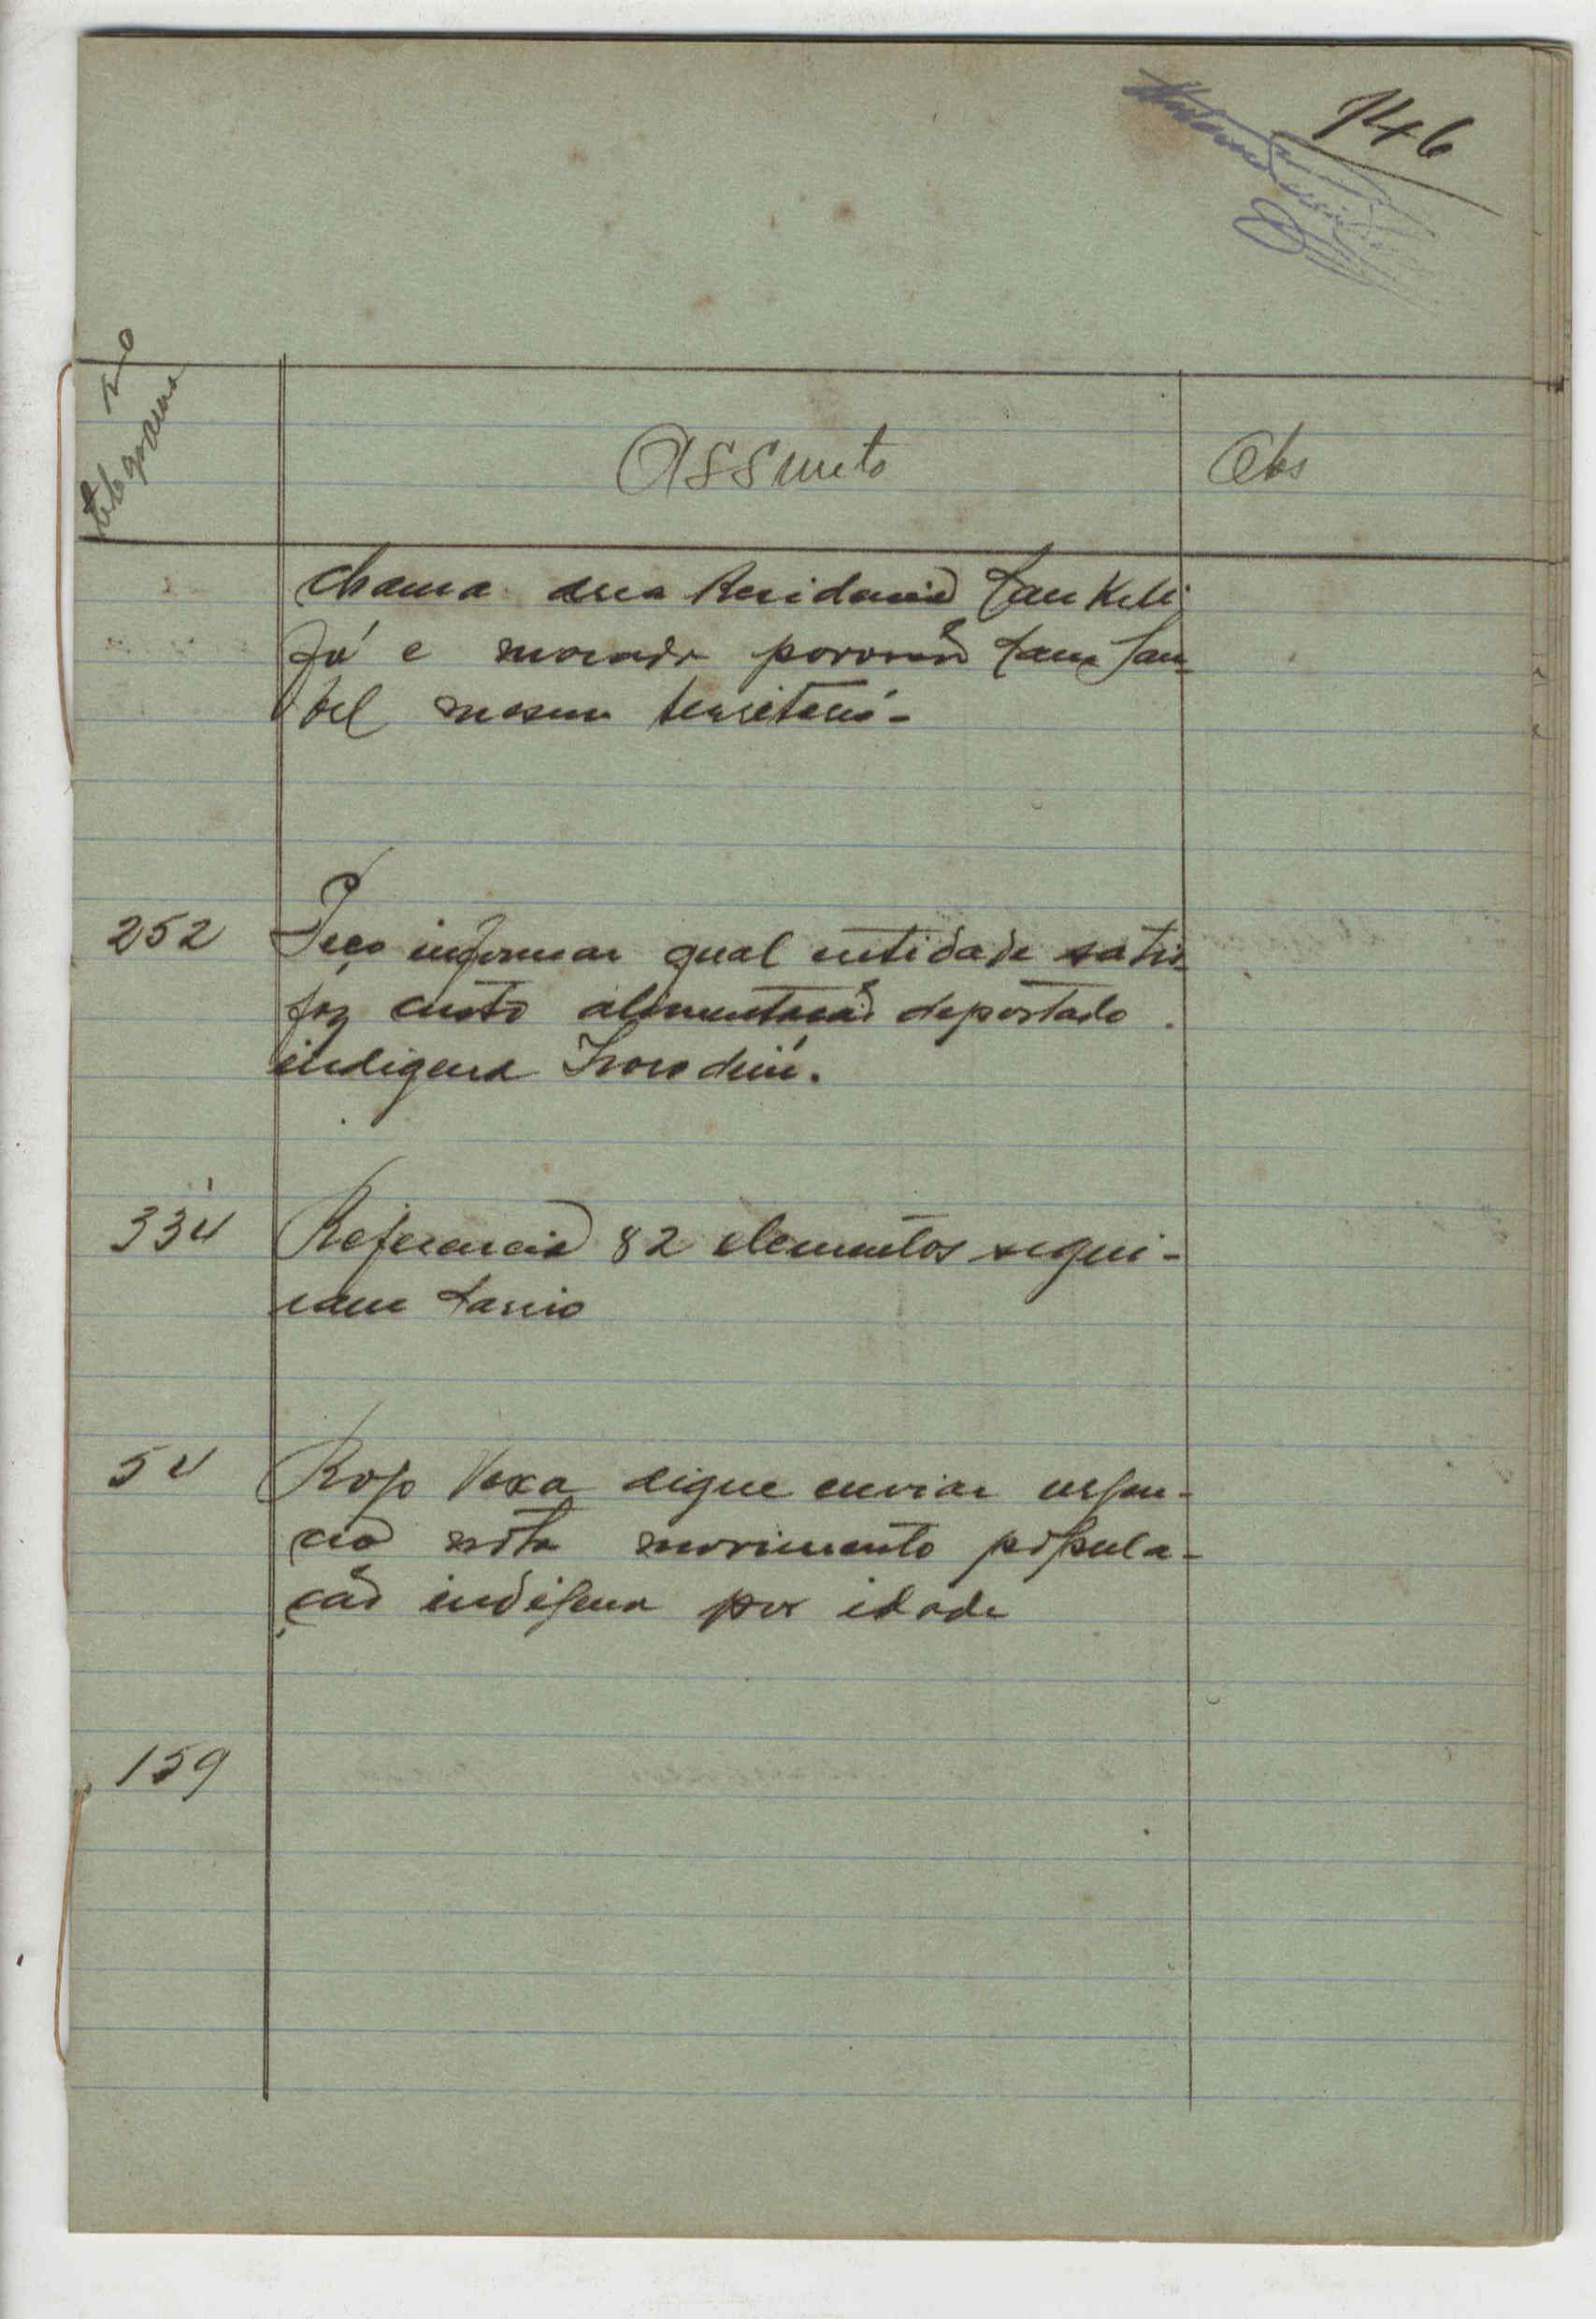 146
No
telegrama
Assunto
Obs
chama area Residencia
Já e morada povoação
mesmo territorio -
252
Peço informar qual entidade satis-
faz custo alimentação deportado
indigena
334
Referencia 82 elementos segui-
ram
54
Rogo Vexa digne enviar urgen-
cia nota movimento popula-
ção indigena por idade
159